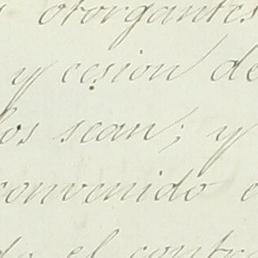 otorgantes
y cesion de
los sean; y
convenido
el contra